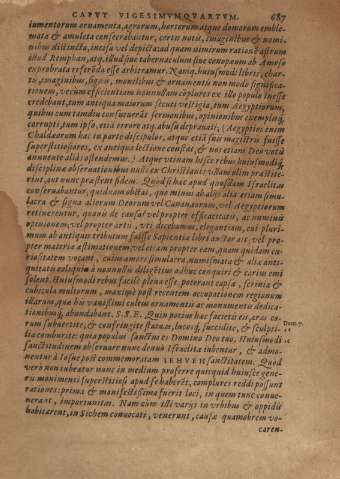 CAPVT VIGESIMVMQVARTVM. 687
iumentorum ornamenta, agrorum, hortorum atque domorum emble-
mata & amuleta consecrabantur, certis notis, imaginibus & nomi-
nibus distincta, incisa vel depicta: ad quam
illud Remphan, atq. illud siue tabernaculum siue conopæum ab Amoso
exprobrata referēda esse arbitramur. Namq. huiusmodi libris, char-
tis, imaginibus, signis, monilibus & ornamentis non modo significa-
tionem, verùm efficientiam nonnullam cōplures ex illo populo inesse
credebant, tum antiqua maiorum secuti vestigia, tum Aegyptiorum,
quibus cum tamdiu consueuerāt sermonibus, opinionibus exemplisq́
corrupti, tum ipso, etiā errore atq. abusu deprauati; (Aegyptios enim
Chaldæorum hac in parte discipulos, atque etiā suis magistris fuisse
superstitiosiores, ex antiqua lectione cōstat, & nos etiam Deo votū
annuente aliàs ostendemus.) Atque vtinam hisce rebus huiusmodiq́
disciplinæ obseruationibus nulli ex Christianis vllam olim præstite-
rint, aut nunc præstent fidem. Quòd si hæc apud quosdam Israelitas
conseruabantur, quidnam obstat, quo minus ab aliis alia etiam simu-
lacra & signa aliorum Deorum vel Cananæorum, vel Aegyptiorum
retinerentur, quauis de causa? vel propter efficacitatis, ac numinis
opinionem, vel propter artis, vti dicebamus, elegantiam, cui pluri-
mum ab antiquis tributum fuisse Sapientiæ libri auctor ait, vel pro-
pter materiæ æstimationem, vel etiam propter eam, quam quidam cu-
riositatem vocant, cuius amore simulacra, numismata & alia anti-
quitatis reliquiæ à nonnullis diligētius adhuc conquiri & cariùs emi
solent. Huiusmodi rebus facilè plena esse poterant capsæ, scrinia &
cubicula multorum, maximè post recentem occupationem regionum
illarum, quæ his vanissimi cultus ornamentis ac monumentis dedica-
tionibusq́, abundabant. S. S. E. Quin potius hæc facietis eis, aras eo-
rum subuertite, & confringite statuas, lucosq́, succidite, & sculpti-
lia comburite: quia populus sanctus es Domino Deo tuo. Huiusmodi
sanctitudinem obseruare nunc denuò Israelitæ iubentur, & admo-
nentur à Iosue post commemoratam IEHVEH sanctitatem. Quod
verò non iubeatur nunc in medium proferre quicquid huiusce gene-
ris monimenti superstitiosi apud se haberēt, complures reddi possunt
rationes: prima & manifestissima fuerit loci, in quem tunc conue-
nerant, importunitas. Nam cùm illi variis in vrbibus & oppidis
habitarent, in Sichem conuocati, venerunt, causæ quamobrem vo-
caren-
Deut. 7.